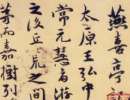 燕喜亭
太原王弘中
常元慧者游
之後丘荒之間
茅而嘉樹列